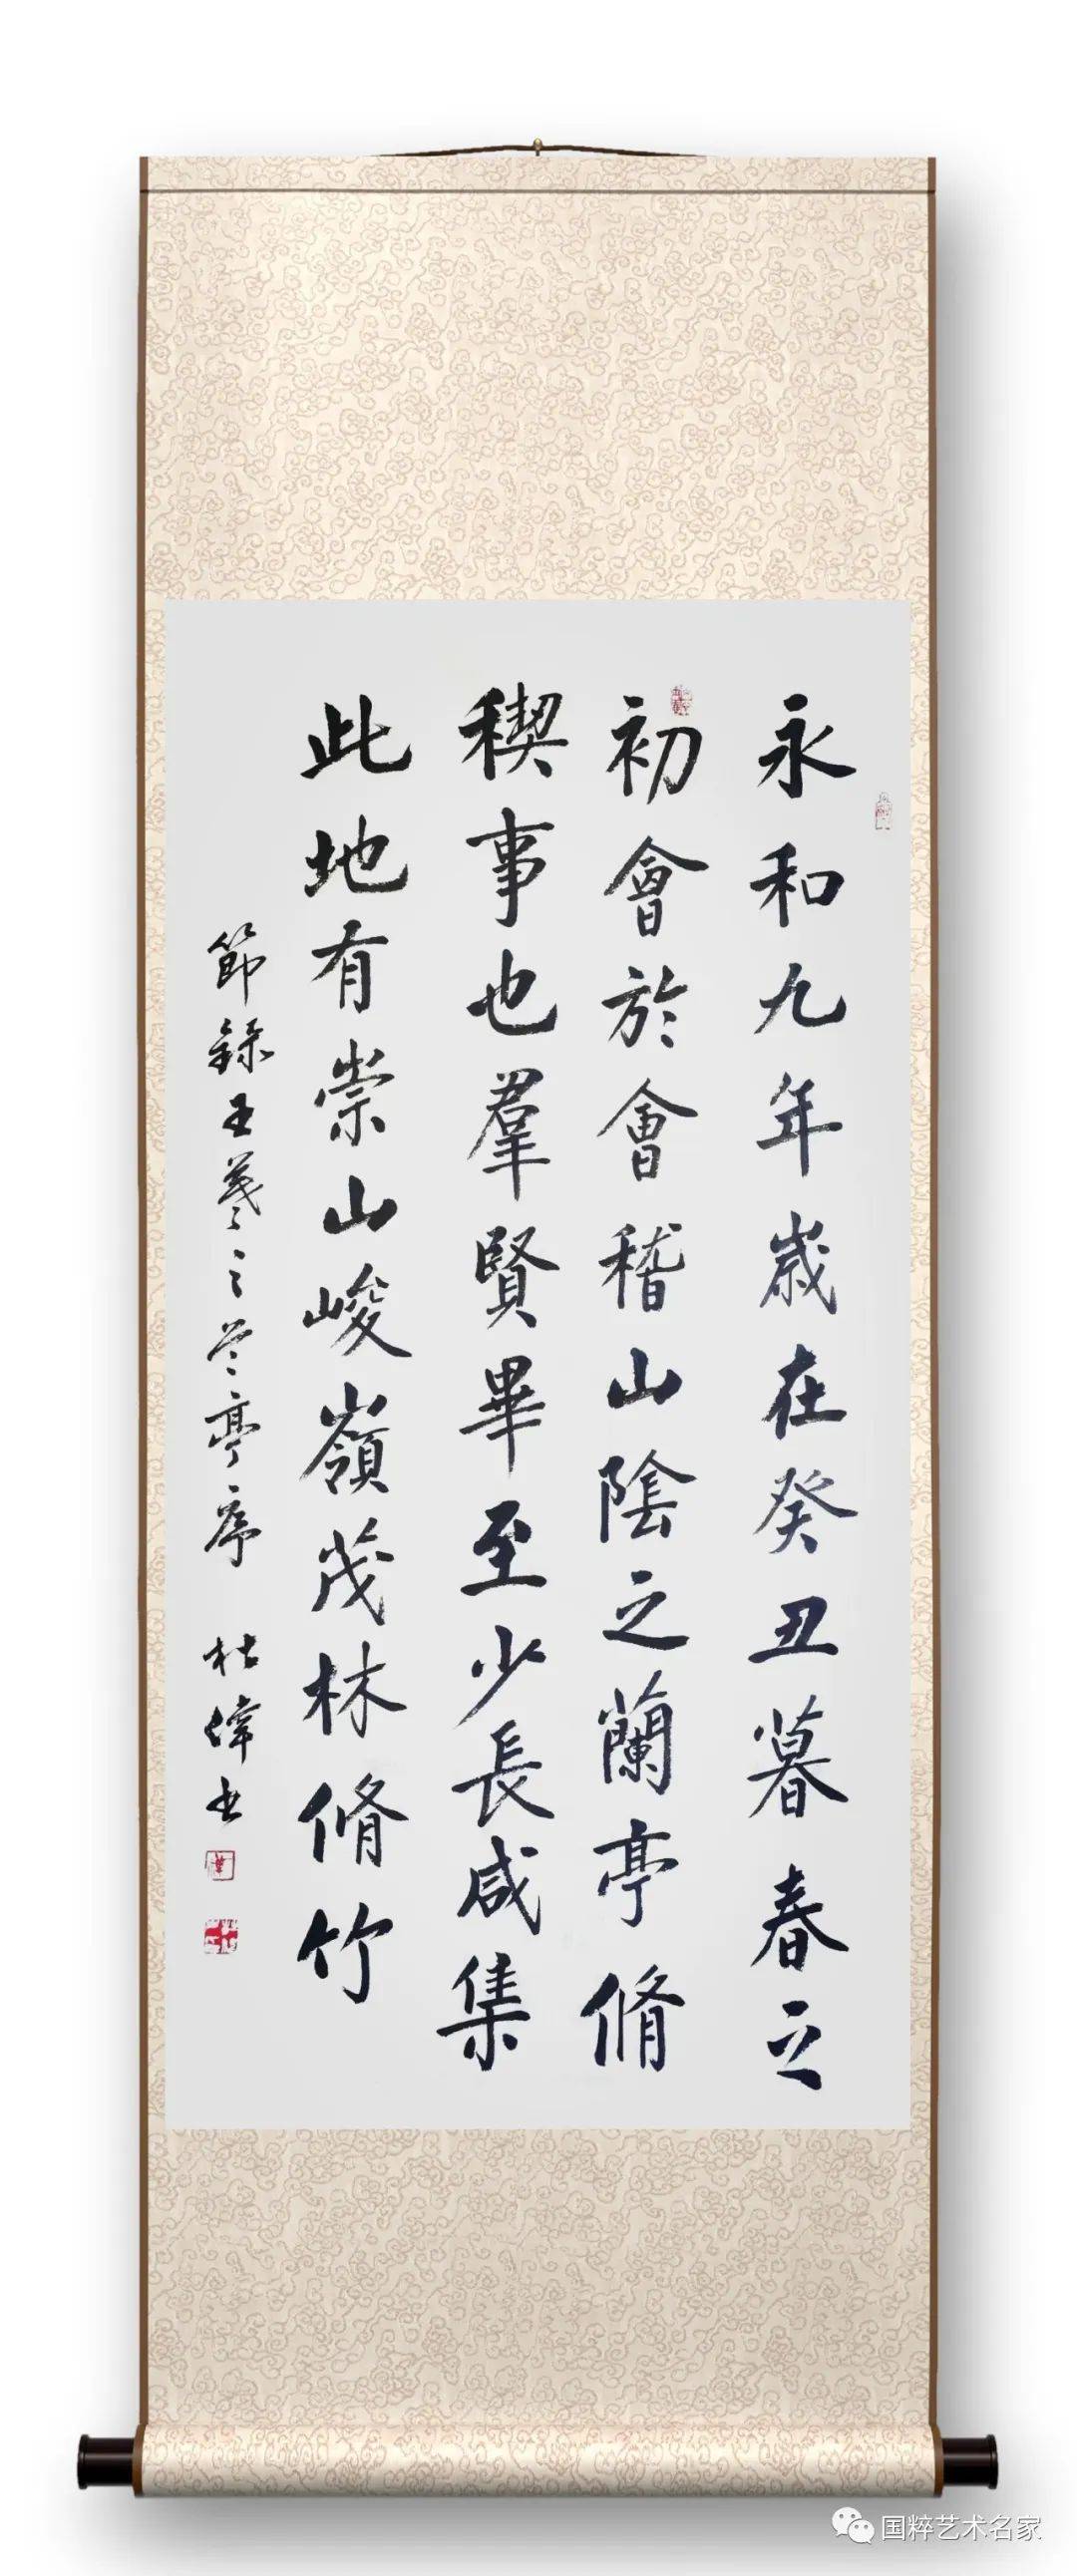 永和九年歲在癸丑暮春之
初會於會稽山陰之蘭亭脩
稧事也羣賢畢至少長咸集
此地有崇山峻嶺茂林脩竹
節錄王羲之兰亭序 杜偉书
国粹艺术名家